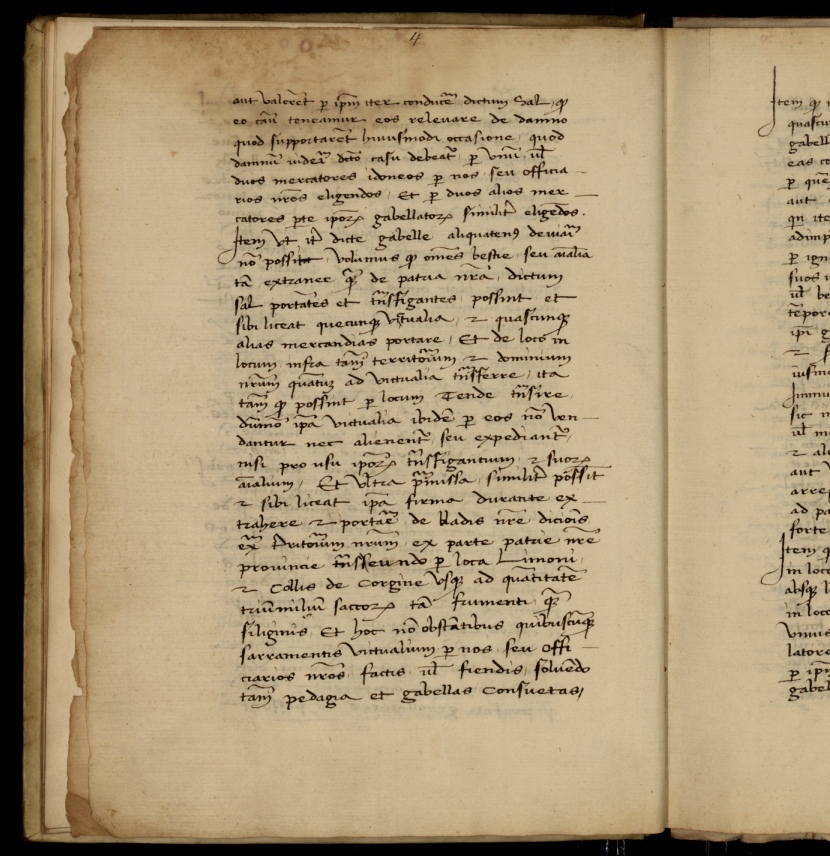 4
aut valeret̄ p ip̄m iter conducē dictum Sal, qp
eo casu teneamur eos relevare de damno
quod supportaret̄ huiusmodi occasione, quod
damnū videri dcto casu debeat̄ p vnū, ul̄
duos mercatores idoneos p nos, seu officia
rios nr̄os eligendos, Et p duos alios mer
catores pte ipor gabellator similit̄ eligēdos.
Item vt it̄ dicte gabelle aliquatenus
nō possit, volumus qp omēs bestie, seu aīalia
tā extranee q̄ de patria nr̄a, dictum
sal portātes et possint et
sibi liceat quecunq victualia, & quascunq
alias mercandias portare, Et de loco in
locum infra tam̄ territoiūm & dominium
nrūm quatuz ad victualia trāsferre, ita
tam̄ qp possint p locum Tende trāsire,
dūmō ipā victualia ibidē p eos nō ven
dantur nec alienent̄, seu expediant̄,
nisi pro usu ipor & suor
aīalium, Et vltra p̄missa, similit̄ possit
& sibi liceat ipā firma durante ex
trahere & portāe de bladis nr̄e dicioīs
nrūm, ex parte patrie nr̄e
prouincie p loca Limoni,
& Collis de Corgine vsq ad quātitatē
triūmiliū saccor tā frumenti q̄
siliginis, Et hoc nō obstātibus quibuscūq
sarramentis victualium p nos, seu offi
ciarios nr̄os, factis ul̄ fiendis, soluēdo
tam̄ pedagia et gabellas consuetas,
Item qp
quascu
gabell
eas co
p que
aut
qn ite
adimp
p ign
suos
ul̄ be
tēpor
ipī g
&
iusmo
Immu
sic
ul̄
& al
aut
arres
ad pa
forte
Item q
in loco
absq l
in loco
vnius
latore
p ip̄m
gabel